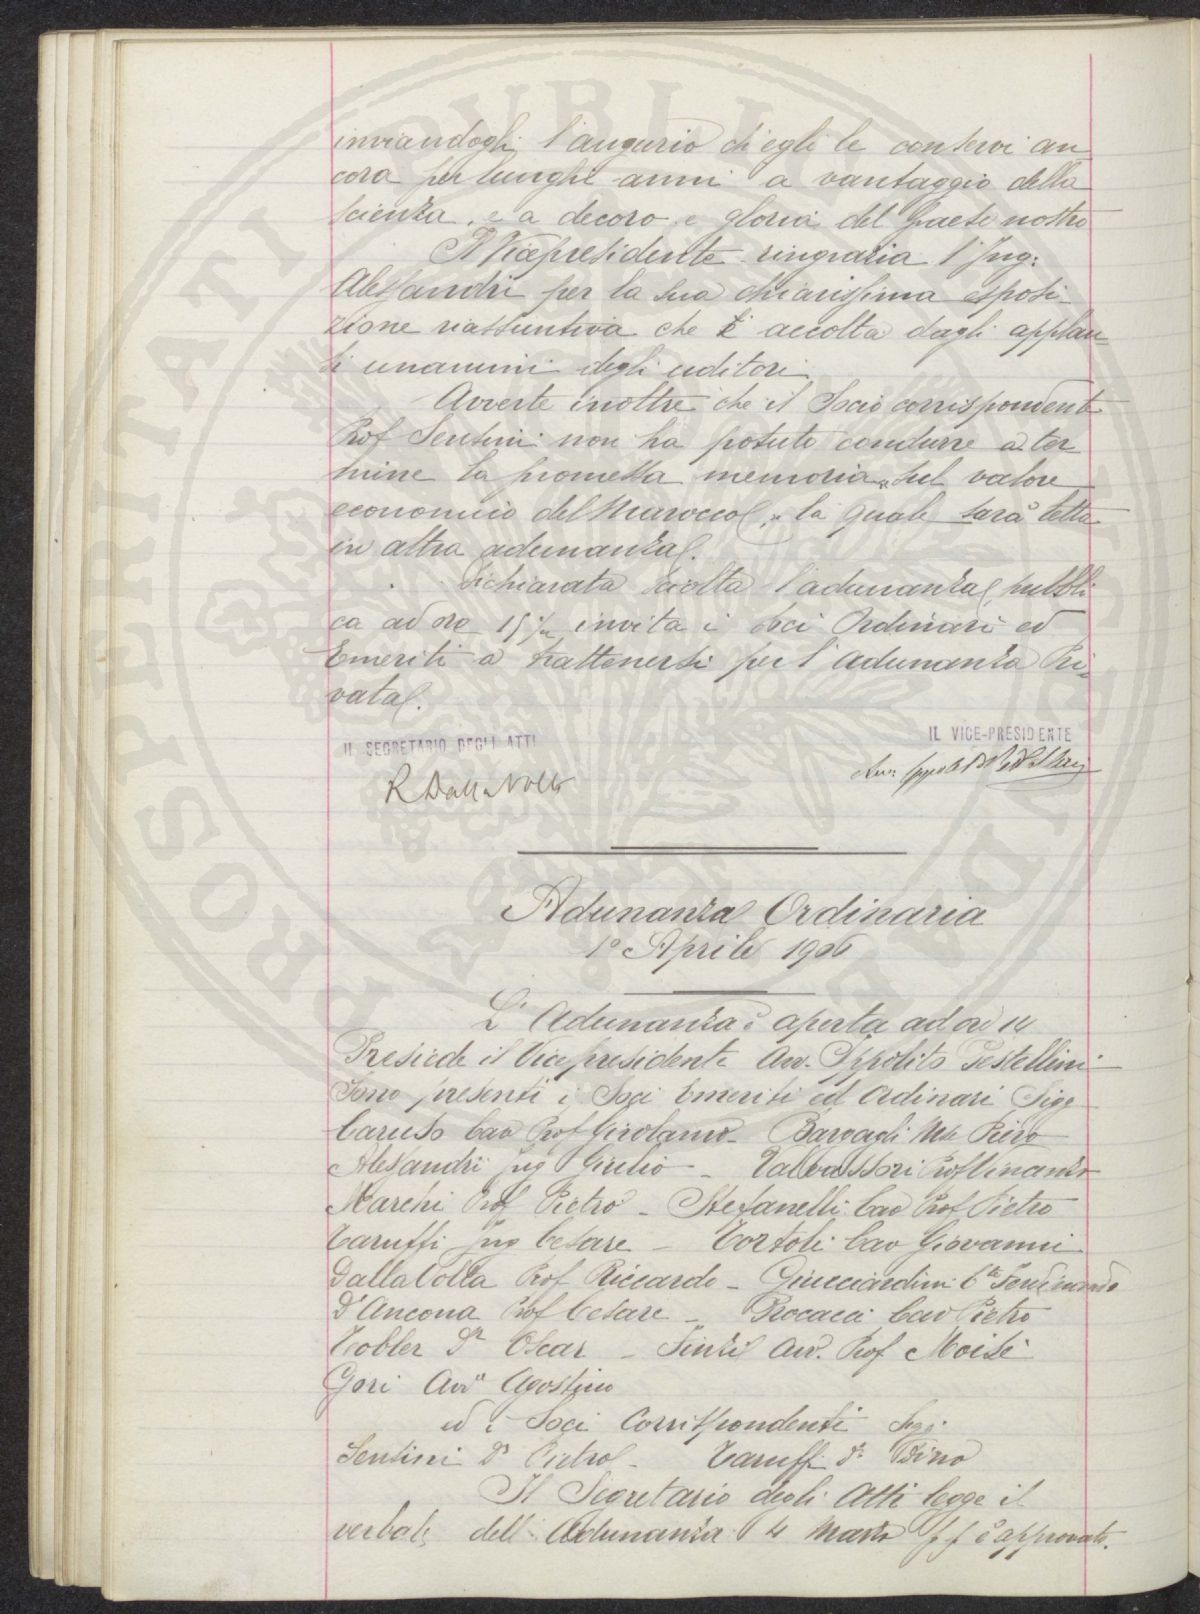 inviandogli l'augurio ch'egli le conservi an
cora per lunghi anni a vantaggio della
scienza, e a decoro e gloria del Paese nostro
Il Vicepresidente ringrazia l'Ing:
Alessandri per la sua chiarissima esposi
zione riassuntiva che è accolta dagli applau
si unanimi degli uditori
Avverte inoltre che il Socio corrispondente
Prof Sentini non ha potuto condurre a ter
mine la promessa memoria "sul valore
economico del Marocco", la quale sarà letta
in altra adunanza.
Dichiarata sciolta l'adunanza pubbli
ca ad ore 15 ½ invita i Soci Ordinari ed
Emeriti a trattenersi per l'adunanza Pri-
vata.
IL SEGRETARIO DEGLI ATTI
IL VICE-PRESIDENTE
R Dalla Volta
Adunanza Ordinaria
1° Aprile 1906
L'Adunanza è aperta ad ore 14
Presiede il Vicepresidente Avv. Ippolito Pestellini
Sono presenti i Soci Emeriti ed Ordinari Sigg
Caruso Cav Prof Girolamo - Bargagli Mse Piero
Alessandri Ing Giulio - Valvassori Prof Vincenzo
Marchi Prof Pietro - Stefanelli Cav Prof Pietro
Taruffi Ing Cesare - Tortoli Cav Giovanni
Dalla Volta Prof Riccardo - Guicciardini Cte Ferdinando
D'Ancona Prof Cesare - Procacci Cav Pietro
Tobler Dr Oscar - Finzi Avv. Prof Moisè
Gori Avv Agostino
ed i Soci Corrispondenti Sigg:
Sentini Dr Pietro - Taruffi Dr Dino
Il Segretario degli Atti legge il
verbale dell'Adunanza 4 Marzo p p è approvato.
PROSPERITATI PVBLICAE